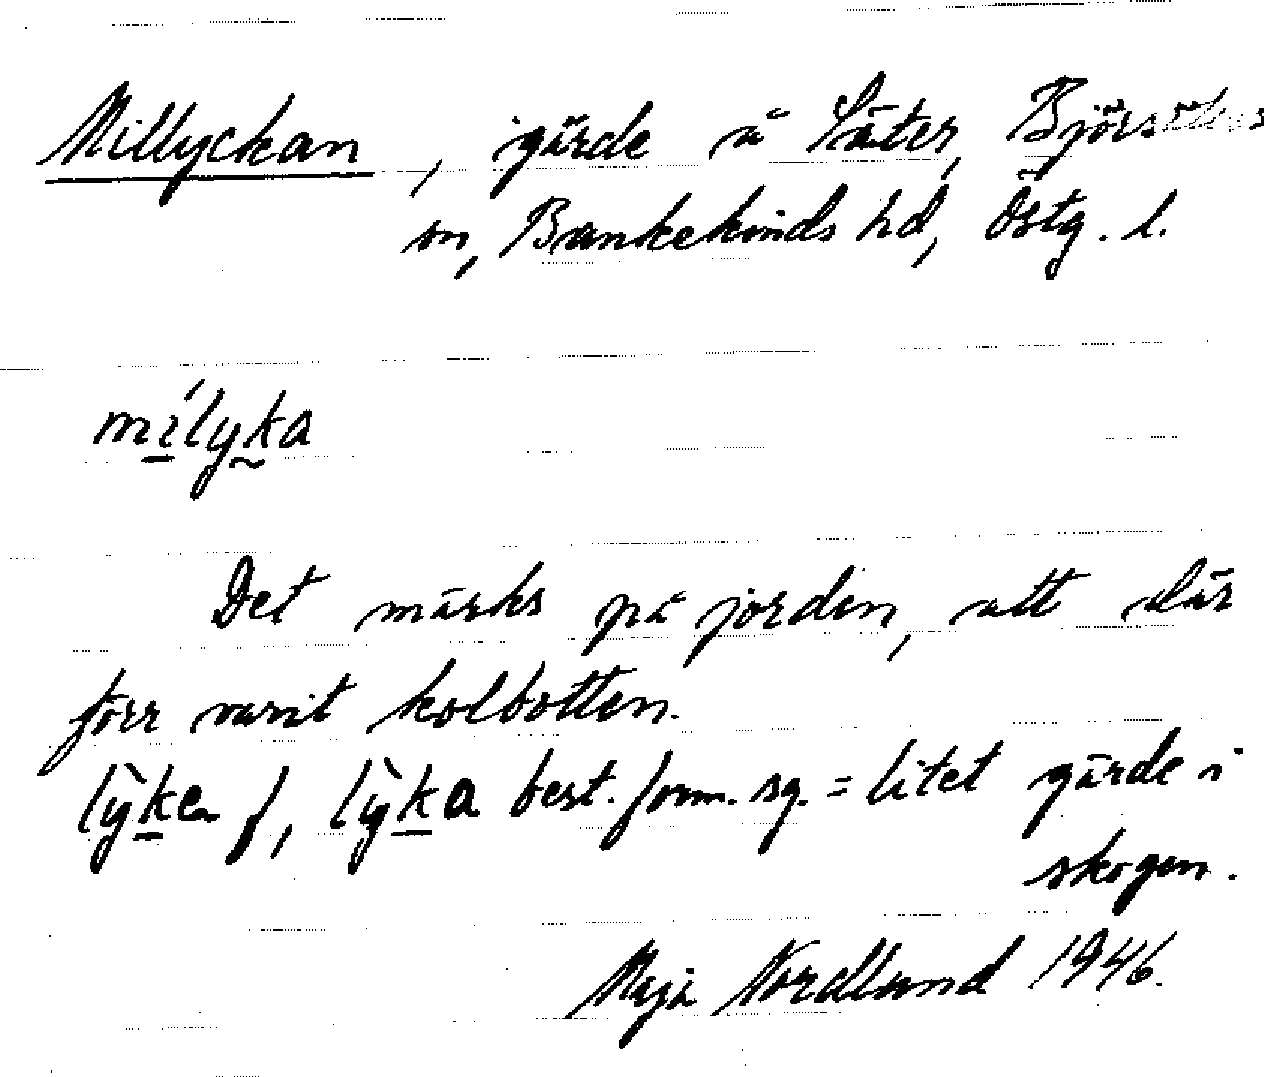 Millyckan, gärde å Säter, Björsäters
sn, Bankekinds hd, Östg. l.
mílyka
Det märks på jorden, att där
förr varit kolbotten.
lỳke f, lỳka best. form. sg. = litet gärde i
skogen.
Maja Nordlund 1946.